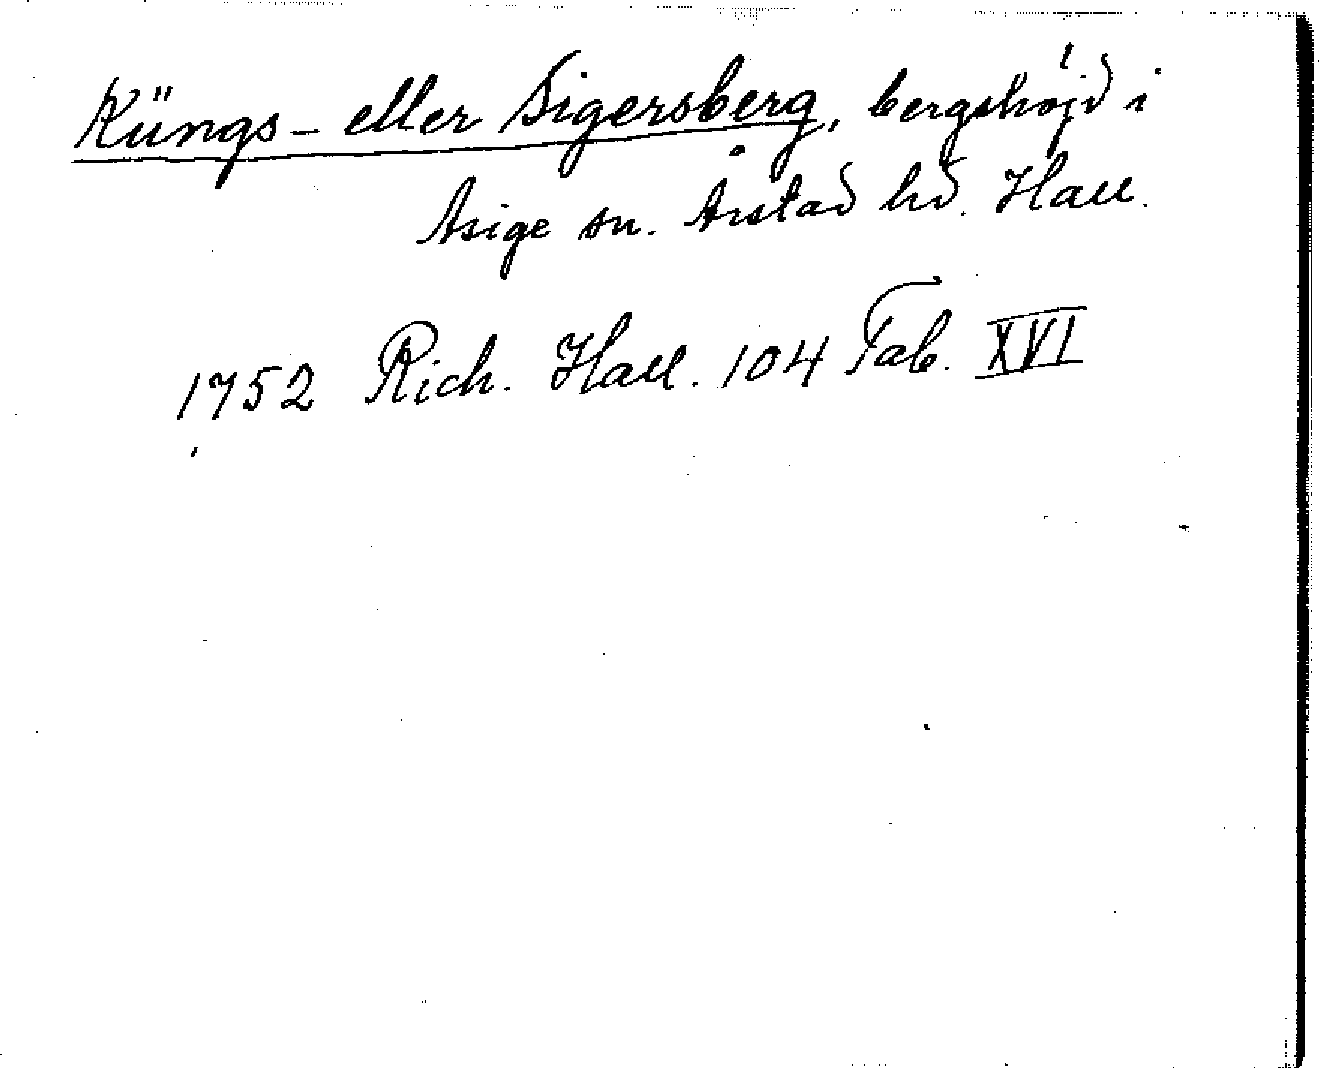 Küngs- eller Sigersberg, bergshöjd i
Asige sn. Årstad hd. Hall.
1752 Rich. Hall. 104 Tab. XVI